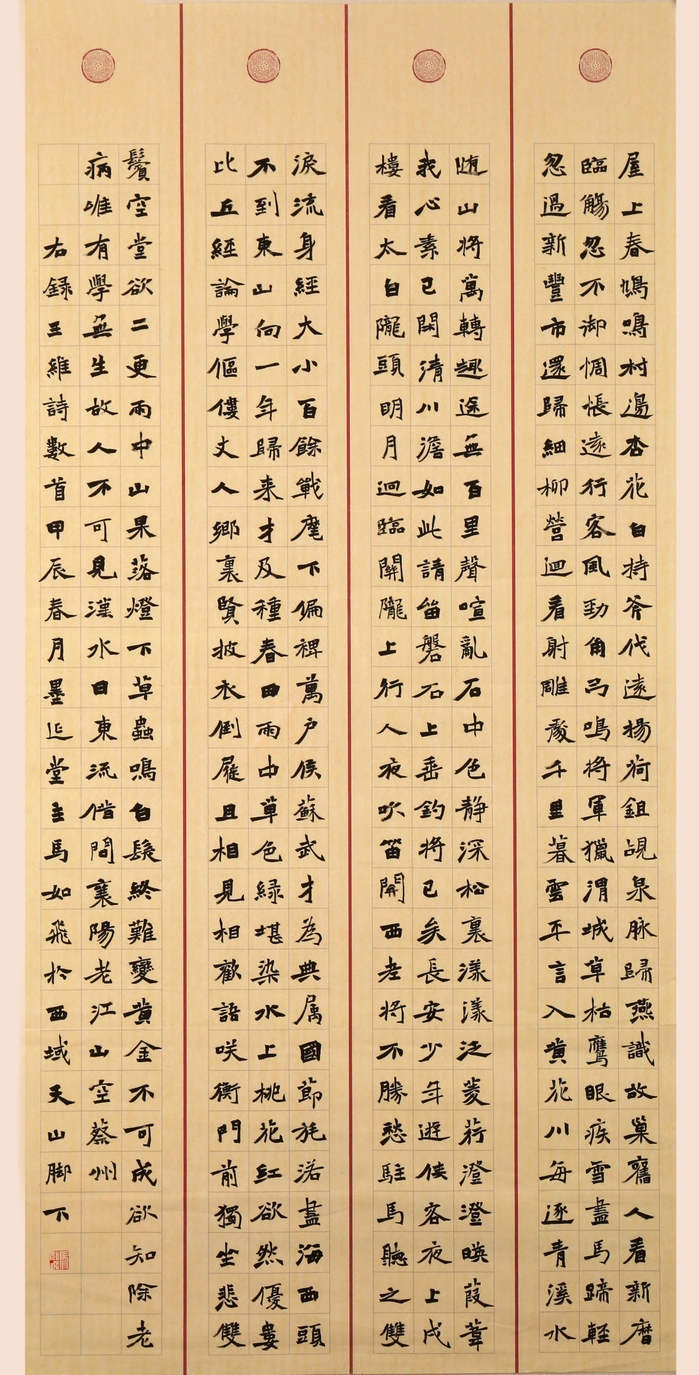 屋上春鳩鳴村邊杏花白持斧伐遠揚荷鉏覘泉脉歸燕識故巢舊人看新曆
臨觴忽不御惆悵遠行客風勁角弓鳴將軍獵渭城草枯鷹眼疾雪盡馬蹄輕
忽過新豐市還歸細柳營迴看射雕處千里暮雲平言入黃花川每逐青溪水
随山將萬轉趣途無百里聲喧亂石中色靜深松裏漾漾泛菱荇澄澄暎葭葦
我心素已閑清川澹如此請留磐石上垂釣將已矣長安少年遊俠客夜上戍
樓看太白隴頭明月迥臨關隴上行人夜吹笛關西老將不勝愁駐馬聽之雙
淚流身經大小百餘戰麾下偏裨萬户侯蘇武才為典属國節旄落盡海西頭
不到東山向一年歸来才及種春田雨中草色緑堪染水上桃花紅欲然優婁
比丘經論學傴僂丈人鄉裏賢披衣倒屣且相見相歡語咲衡門前獨坐悲雙
鬢空堂欲二更雨中山果落燈下草蟲鳴白髮終難變黃金不可成欲知除老
病唯有學無生故人不可見漢水日東流借問襄陽老江山空蔡州
右録王維詩數首甲辰春月墨延堂主馬如飛於西域天山脚下